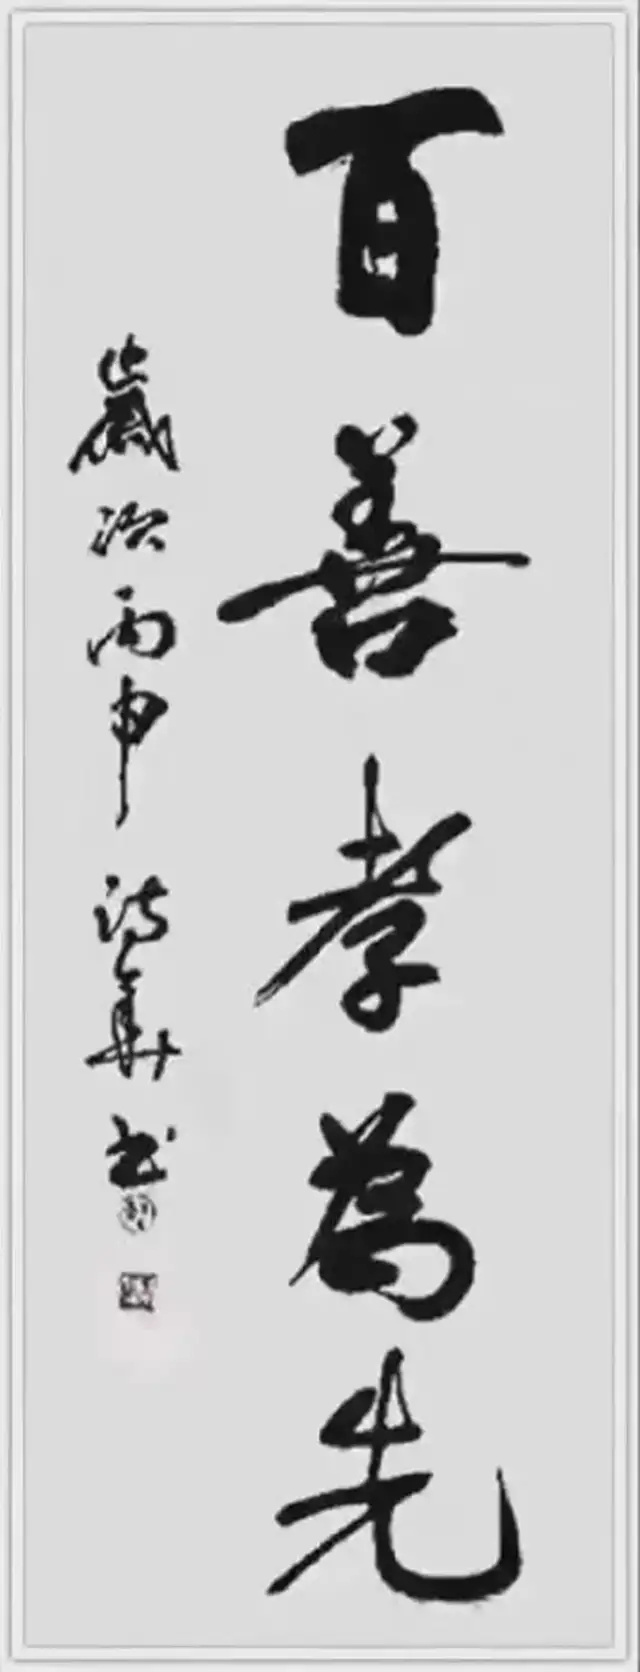 百善孝為先
歲次丙申 詩華書